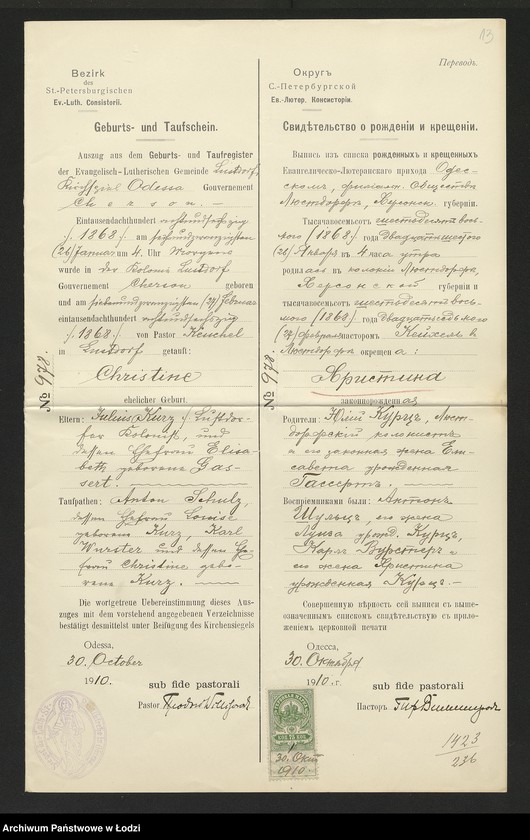 13
Bezirk
des
St.-Petersburgischen
Ev.-Luth. Consistorii.
Geburts- und Taufschein.
Auszug aus dem Geburts- und Taufregister
der Evangelisch-Lutherischen Gemeinde Lustdorf,
Kirchspiel Odessa Gouvernement
Cherson. —
Eintausendachthundert achtundsechzig
/. 1868 ./ am sechsundzwanzigsten
(26) Januar um 4. Uhr Morgens
wurde in der Kolonie Lustdorf
Gouvernement Cherson geboren
und am siebenundzwanzigsten (27) Februar
eintausendachthundert achtundsechzig
/. 1868 ./ von Pastor
in Lustdorf getauft:
Christine
ehelicher Geburt.
Eltern: Julius Kurz, Lustdor-
fer Kolonist, und
dessen Ehefrau Elisa-
beth geborene Gas-
sert.
Taufpathen: Anton Schulz,
dessen Ehefrau Louise
geborene Kurz, Karl
Wurster und dessen Eh-
frau Christine gebo-
rene Kurz.
Die wortgetreue Uebereinstimmung dieses Aus-
zuges mit dem vorstehend angegebenen Verzeichnisse
bestätigt desmittelst unter Beifügung des Kirchensiegels
Odessa,
30. October
1910.
sub fide pastorali
Pastor
№ 978.
Переводъ.
Округъ
С.-Петербургской
Ев.-Лютер. Консисторіи.
Свидѣтельство о рожденіи и крещеніи.
Выпись изъ списка рожденныхъ и крещенныхъ
Евангелическо-Лютеранскаго прихода Одес-
скомъ, филіал. Общества
Люстдорфъ, Херсонск. губерніи.
Тысячавосемьсотъ шестьдесятъ вось-
мого /1868/ года двадцатшестого
(26) Января въ 4 часа утра
родилась въ колоніи Люстдорфъ,
Херсонской губерніи и
тысячавосемьсотъ шестьдесятъ вось-
мого /1868/ года двадцатьседьмого
(27) февраля пасторомъ въ
Люстдорфѣ окрещена:
Христина
законнорожденная
Родители: Юлій Курцъ, Люст-
дорфскій колонистъ
и его законная жена Ели-
савета урожденная
Гассертъ.
Воспріемниками были: Антонъ
Шульцъ, его жена
Луиза урожд. Курцъ,
Карлъ Вурстеръ и
его жена Христина
урожденная Курцъ. —
Совершенную вѣрность сей выписи съ выше-
означеннымъ спискомъ свидѣтельствую съ прило-
женіемъ церковной печати
Одесса,
30. Октября
1910. г.
sub fide pastorali
Пасторъ
№ 978.
30. Окт.
1910.
1423
236
Archiwum Państwowe w Łodzi